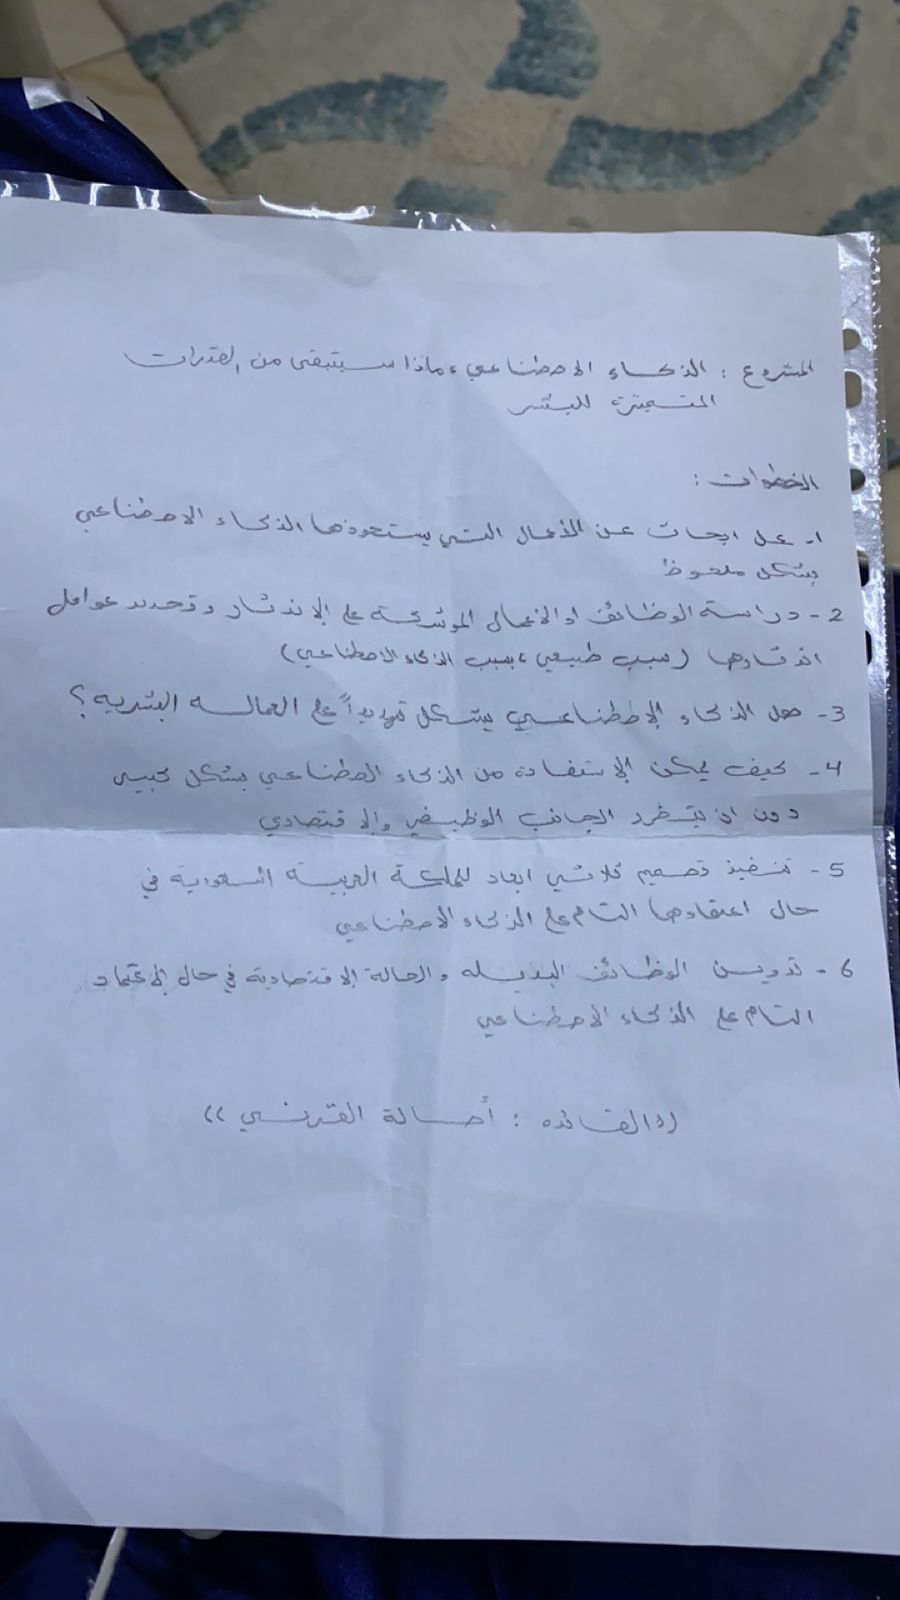 المشروع : الذكاء الاصطناعي، ماذا سيتبقى من القدرات
المتميزة للبشر
الخطوات :
1- عمل ابحاث عن الأعمال التي يستحوذها الذكاء الاصطناعي
بشكل ملحوظ
2- دراسة الوظائف او الأعمال الموشكة على الإندثار و تحديد عوامل
اندثارها (سبب طبيعي، بسبب الذكاء الاصطناعي)
3- هل الذكاء الإصطناعي يشكل تهديداً على العمالة البشريه ؟
4- كيف يمكن الإستفادة من الذكاء الصطناعي بشكل كبير
دون ان يتضرر الجانب الوظيفي والإقتصادي
5- تنفيذ تصميم ثلاثي ابعاد للملكة العربية السعودية في
حال اعتمادها التام على الذكاء الاصطناعي
6- تدوين الوظائف البديله و الحالة الإقتصادية في حال الإعتماد
التام على الذكاء الاصطناعي
((القائده : أصالة القرني))